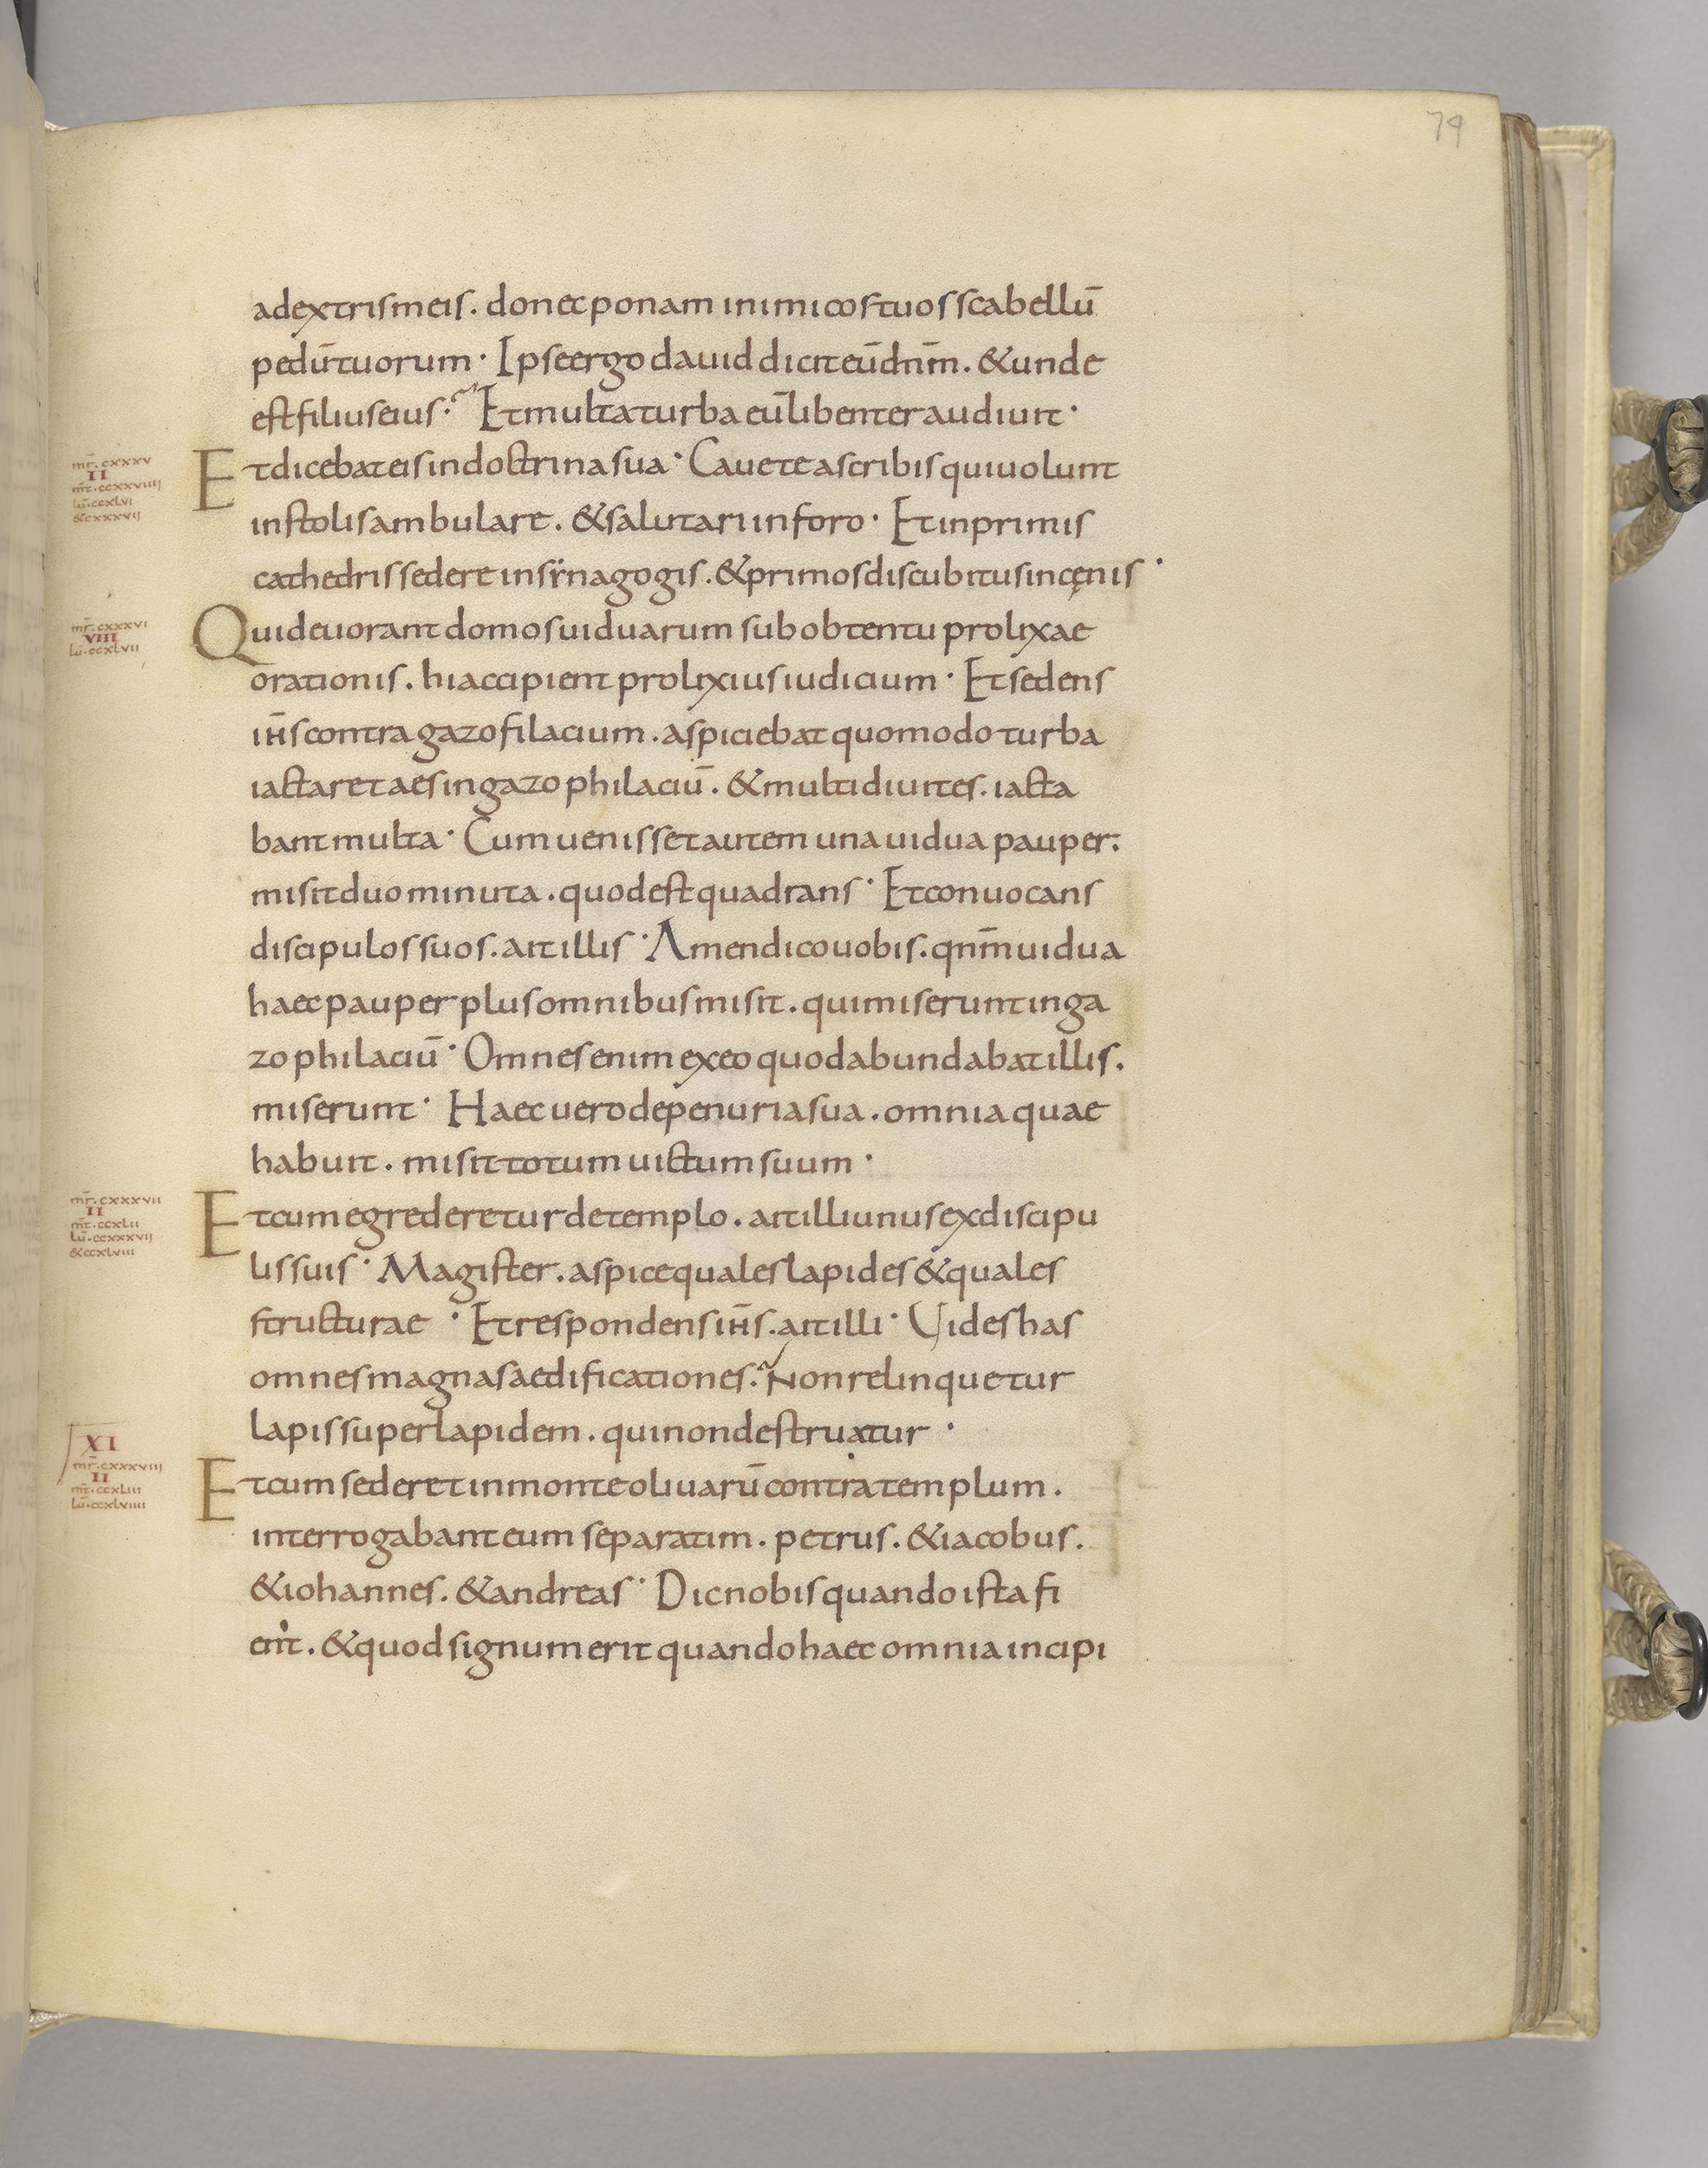 79
adextrismeis. donec ponam inimicostuos scabellū
pedūtuorum· Ipseergo dauid dicit eūdnm̄. &unde
estfiliuseius· Etmultaturba eūlibenter audiuit·
mr̄.cxxxv
II
mt̄.ccxxviiii
lū.ccxlvi
&cxxxvii
Etdicebat eisindoctrinasua· Cauete ascribis quiuolunt
instolisambulare. &salutari inforo· Etinprimis
cathedris sedere insẏnagogis. &primosdiscubitusincęnis·
mr̄.cxxxvi
VIII
lū.ccxlvii
Quideuorant domosuiduarum sub obtentu prolixae
orationis. hi accipient prolixius iudicium· Etsedens
ih̄s contra gazofilacium. aspiciebat quomodo turba
iactaret aes ingazophilaciū. &multidiuites. iacta
bant multa· Cum uenisset autem una uidua pauper.
misit duo minuta. quodest quadrans· Etconuocans
discipulos suos. ait illis· Amendicouobis. qnm̄ uidua
haec pauper plus omnibus misit. qui miserunt inga
zophilaciū· Omnes enim exeo quodabundabat illis.
miserunt· Haec uero depenuria sua. omnia quae
habuit. misit totum uictum suum·
mr̄.cxxxvii
II
mt̄.ccxlii
lū.ccxxxvii
&ccxlviii
Etcum egrederetur detemplo. ait illi unus exdiscipu
lis suis· Magister. aspice quales lapides &quales
structurae· Etrespondens ih̄s. ait illi· Uides has
omnes magnas aedificationes. Non relinquetur
lapis super lapidem. qui non destruatur·
XI
mr̄.cxxxviii
II
mt̄.ccxliii
lū.ccxlviiii
Etcum sederet inmonte oliuarū contra templum.
interrogabant eum separatim. petrus. &iacobus.
&iohannes. &andreas· Dicnobis quando ista fi
ent. &quod signum erit quando haec omnia incipi